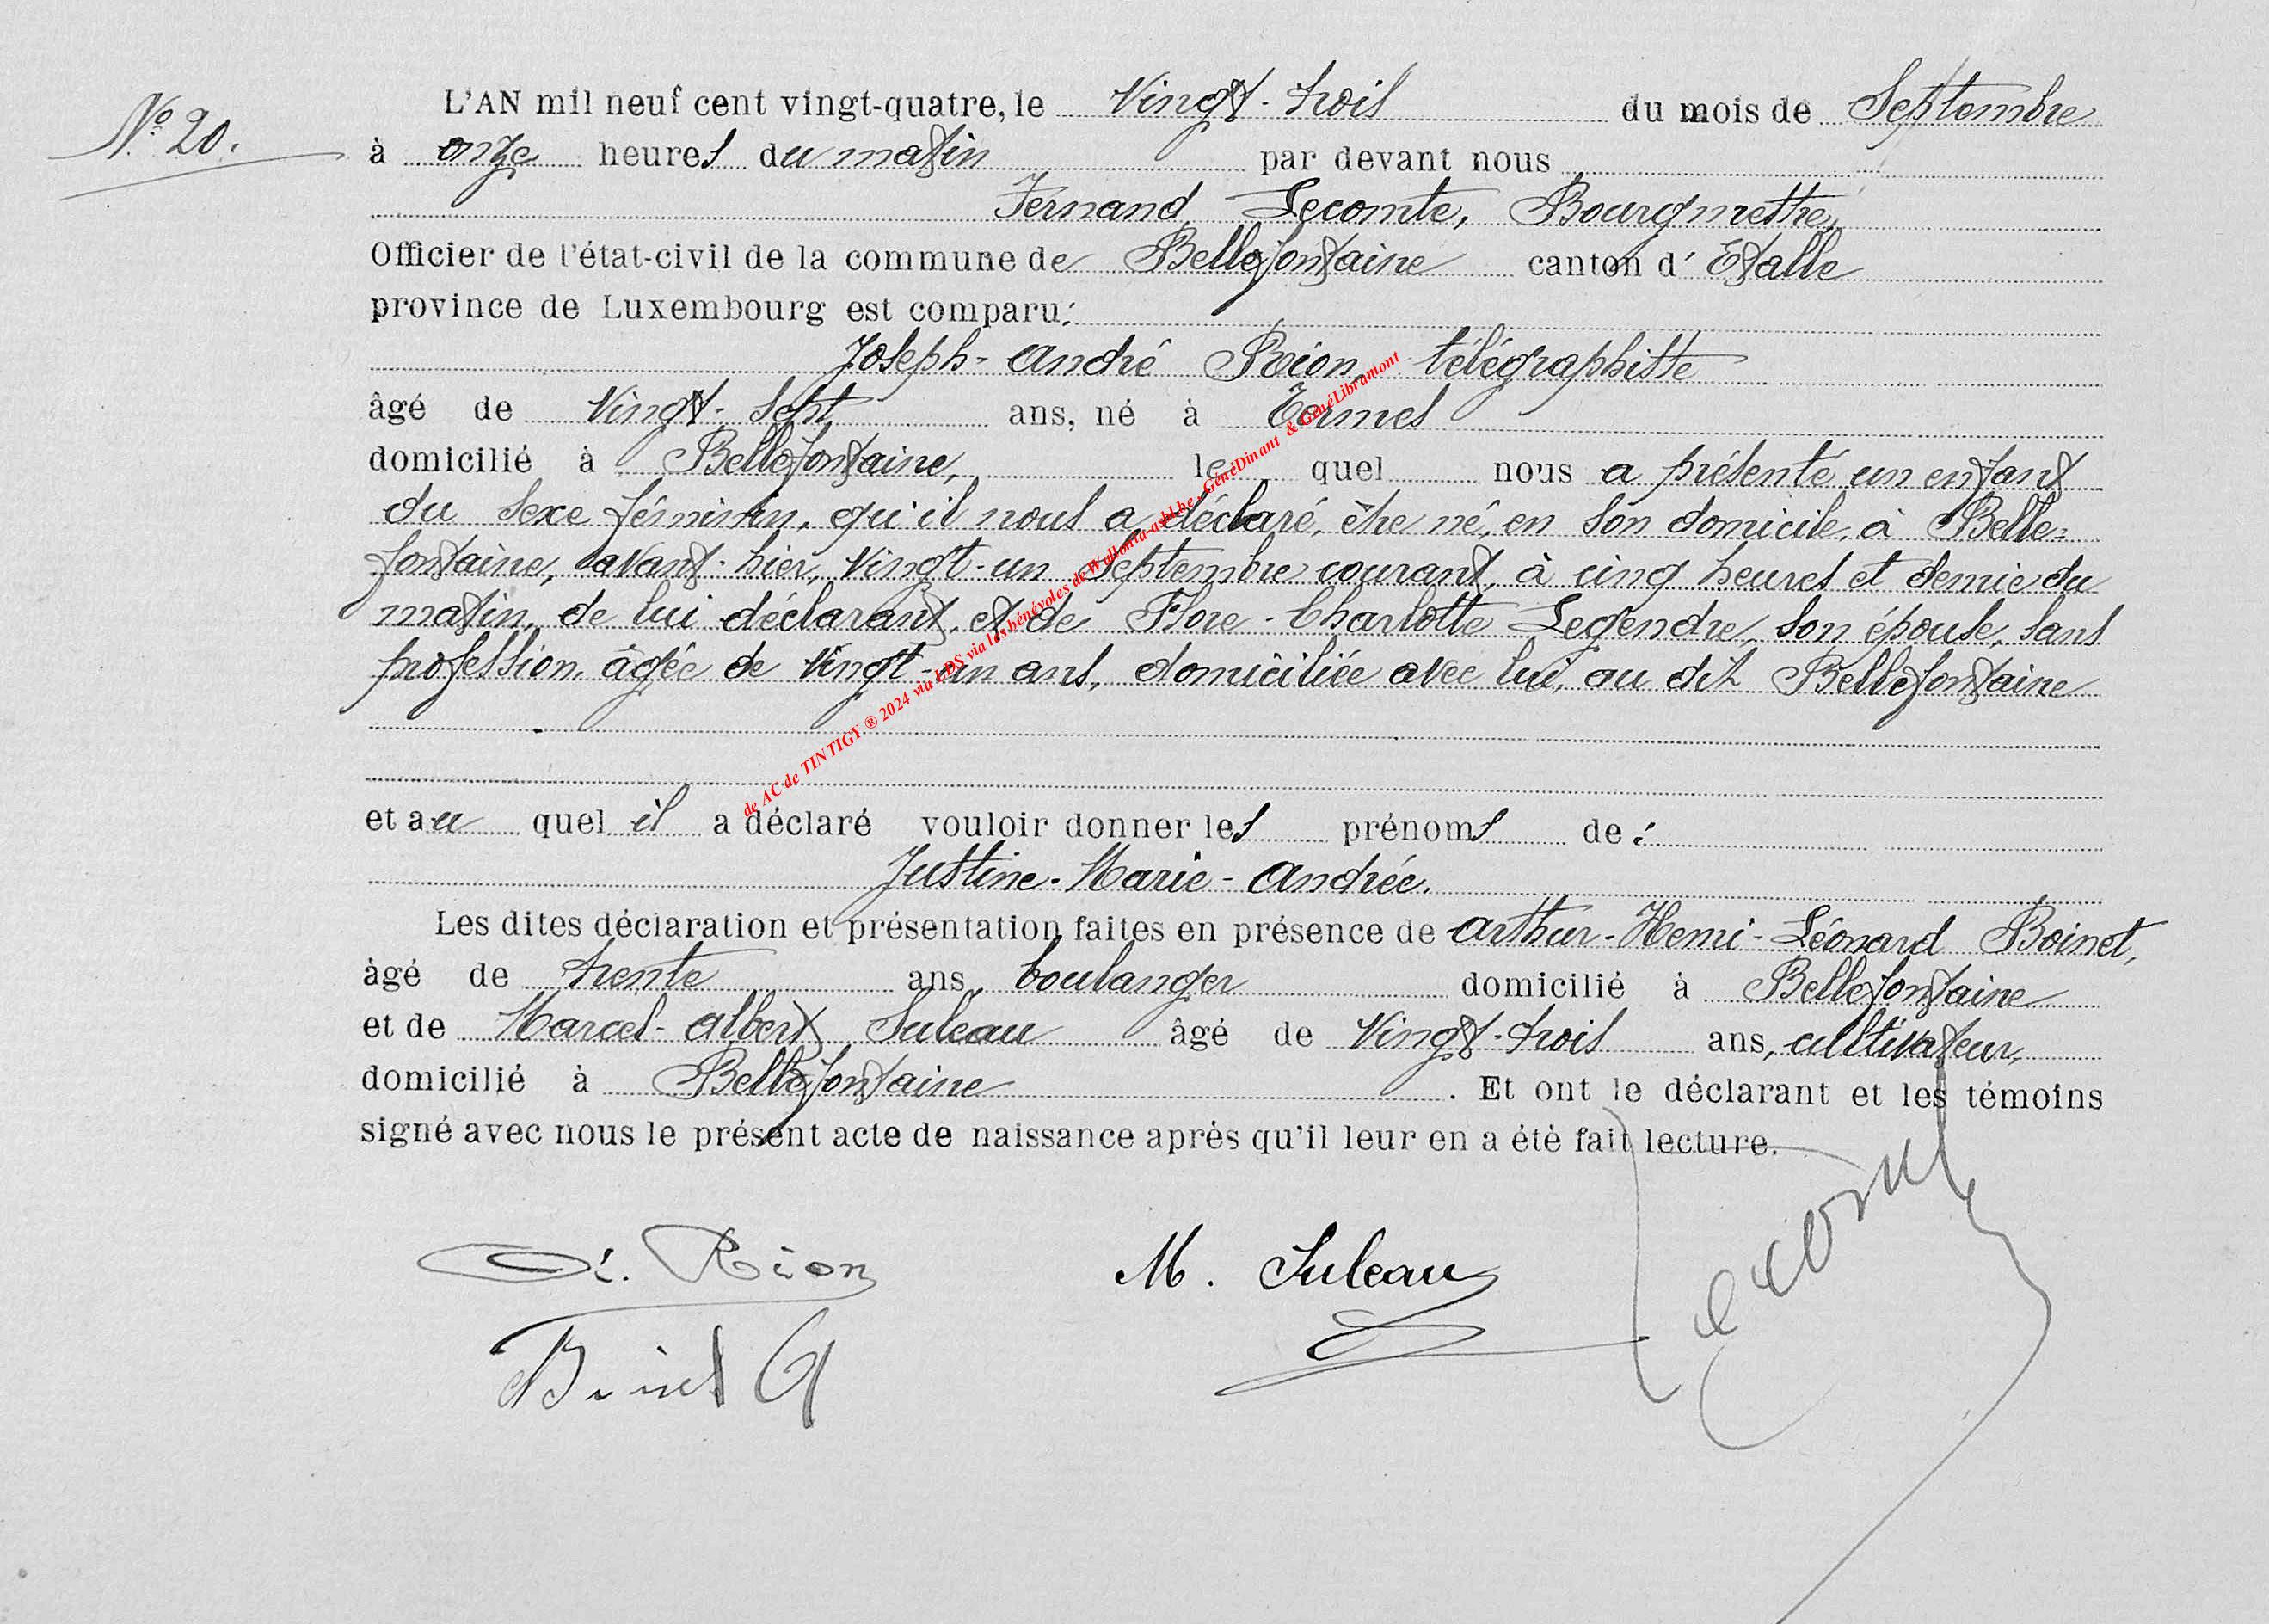 N° 20.
L'AN mil neuf cent vingt-quatre, le Vingt-trois du mois de Septembre
à onze heures du matin par devant nous
Fernand Lecomte, Bourgmestre,
Officier de l'état-civil de la commune de Bellefontaine canton d'Etalle
province de Luxembourg est comparu:
Joseph-André Rion, télégraphiste
âgé de Vingt-sept ans, né à Termes
domicilié à Bellefontaine, lequel nous a présenté un enfant
du sexe féminin, qu'il nous a déclaré, être né, en son domicile, à Belle=
fontaine, avant-hier, vingt-un Septembre courant, à cinq heures et demie du
matin, de lui déclarant, et de Flore-Charlotte Legendre, son épouse, sans
profession, âgée de vingt-un ans, domiciliée avec lui, au dit Bellefontaine
et au quel il a déclaré vouloir donner les prénoms de:
Justine-Marie-Andrée.
Les dites déclaration et présentation faites en présence de Arthur-Henri-Léonard Boinet,
âgé de trente ans, boulanger domicilié à Bellefontaine
et de Marcel-Albert Suleau âgé de Vingt-trois ans, cultivateur,
domicilié à Bellefontaine. Et ont le déclarant et les témoins
signé avec nous le présent acte de naissance après qu'il leur en a été fait lecture.
Rion M. Suleau Lecomte
Boinet A
de AC de TINTIGY ® 2024 via LDS via les bénévoles de Wallonia-asbl.be, GénéDinant & GénéLibramont